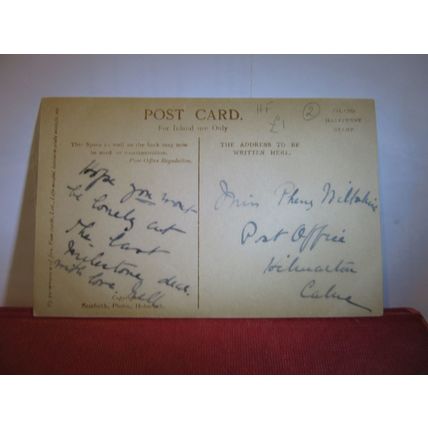 POST CARD.
For Inland use Only
HF
£1
2
INLAND
HALFPENNY
STAMP.
This Space as well as the back may now
be used for communication.
Post Office Regulation.
THE ADDRESS TO BE
WRITTEN HERE.
Hope you wont
be lonely at
the last
milestone, dear.
with love. Nell
Miss Wiltshire
Post Office
Calne